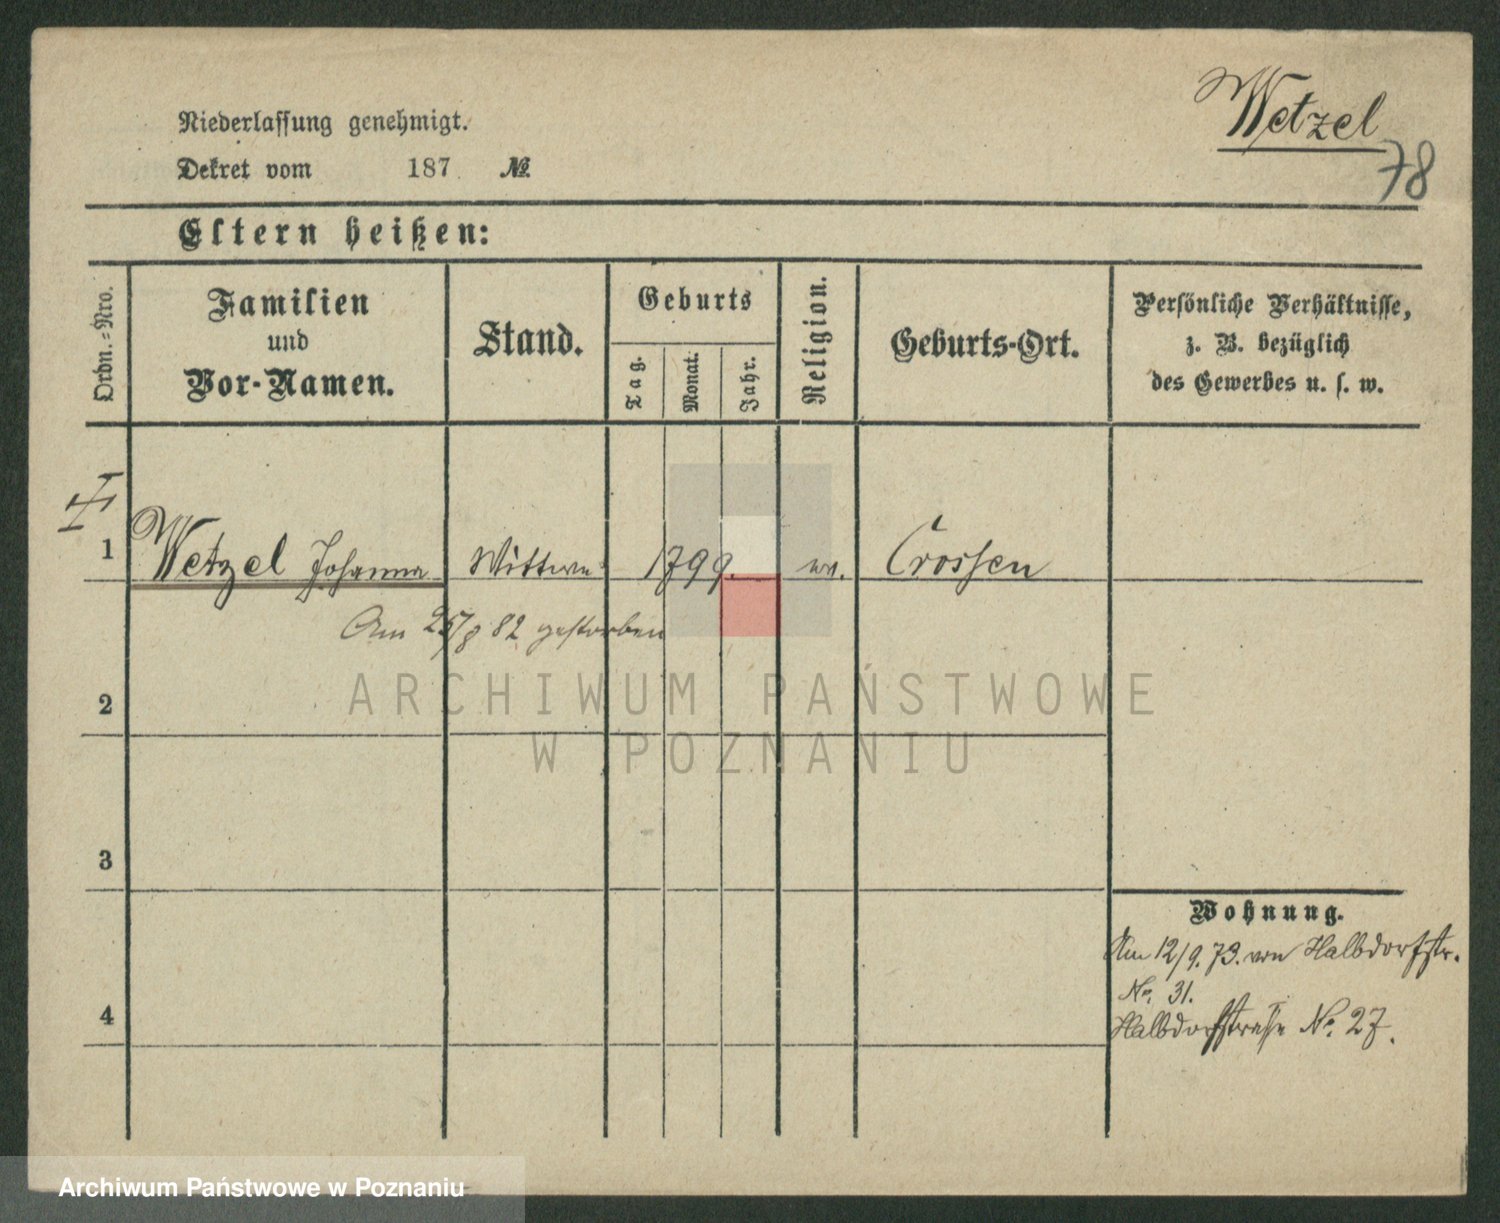 Wetzel
78
Niederlassung genehmigt.
Dekret vom 187 №
Eltern heißen:
Ordn.-Nro.
Familien
und
Vor-Namen.
Stand.
Geburts
Tag.
Monat.
Jahr.
Religion.
Geburts-Ort.
Persönliche Verhältnisse,
z. B. bezüglich
des Gewerbes u. s. w.
1 Wetzel Johanna Wittwe 1799. ev. Crossen
Am 25/8 82 gestorben
ARCHIWUM PAŃSTWOWE
W POZNANIU
2
3
4
Wohnung.
Am 12/9.73. von Halbdorfstr.
No. 31.
Halbdorfstrasse No. 27.
Archiwum Państwowe w Poznaniu